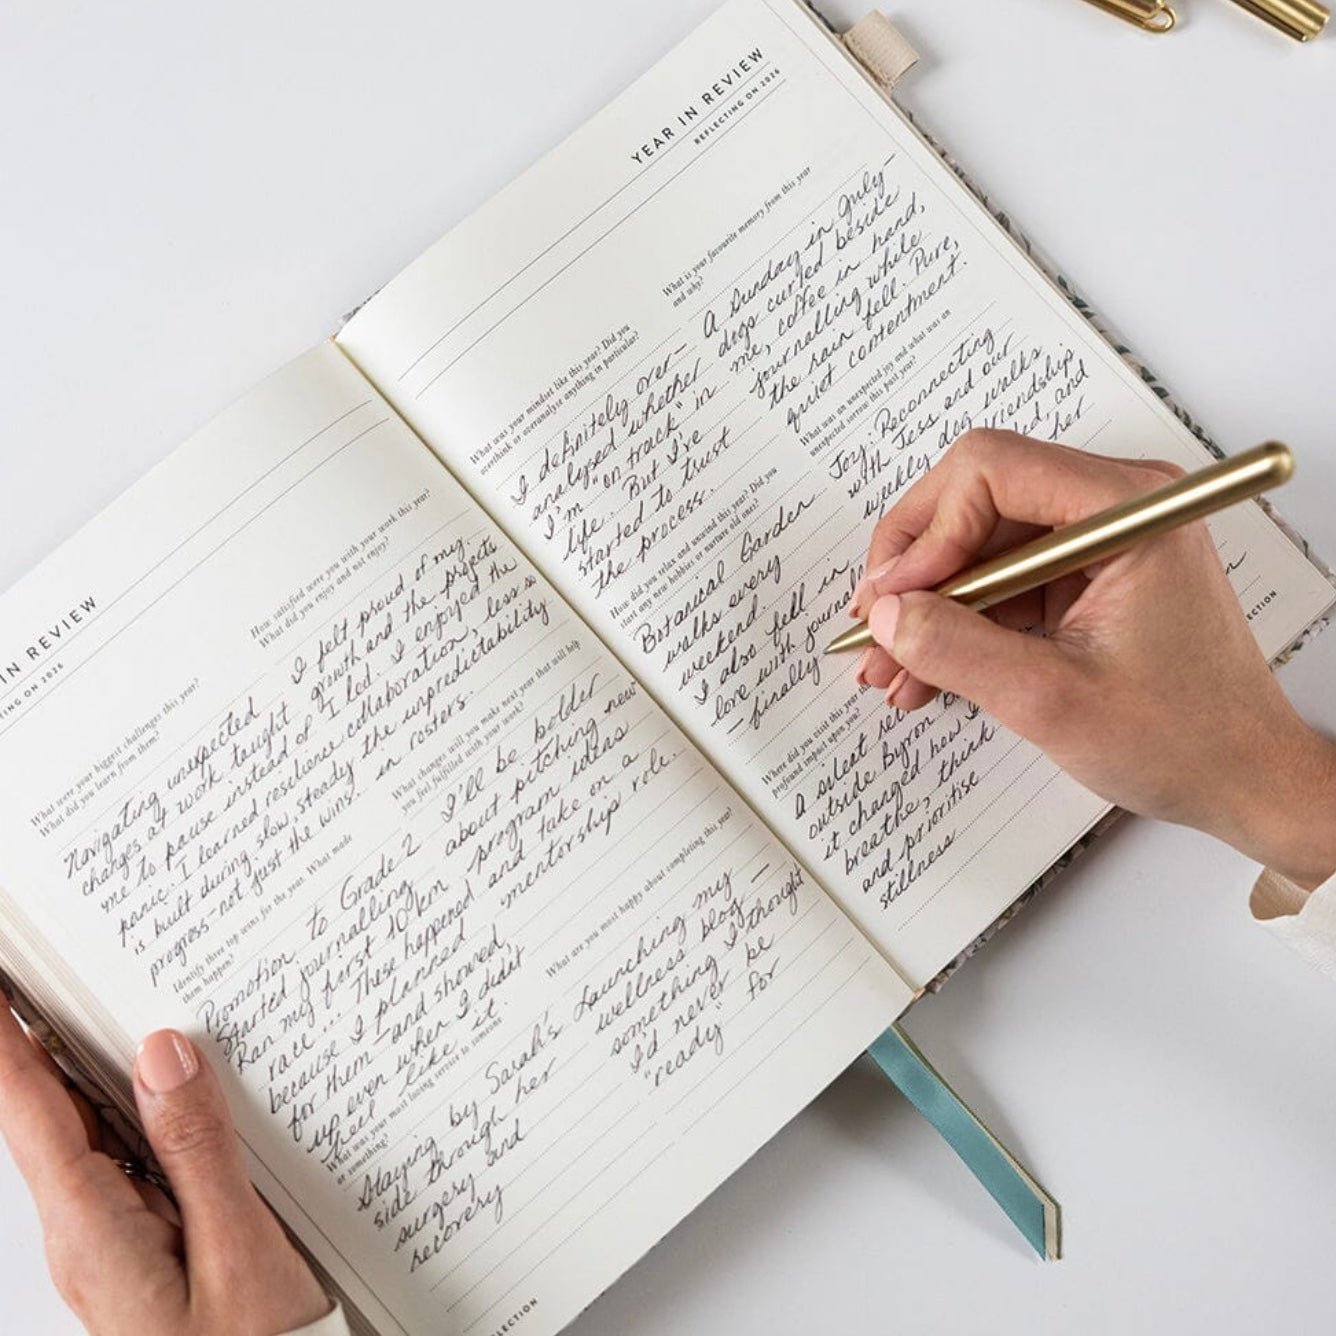 IN REVIEW
ING ON 2026
What were your biggest challenges this year?
What did you learn from them?
Navigating unexpected
changes at work taught
me to pause instead of
panic. I learned resilience
is built during slow, steady
progress-not just the wins.
Identify three top wins for the year. What made
them happen?
Promotion to Grade 2
Started journalling
Ran my first 10km
race ... These happened
because I planned
for them - and showed
up even when I didn't
feel like it.
What was your most loving service to someone
or something?
Staying by Sarah's
side through her
surgery and
recovery
How satisfied were you with your work this year?
What did you enjoy and not enjoy?
I felt proud of my
growth and the projects
I led. I enjoyed the
collaboration, less so
the unpredictability
in rosters.
What changes will you make next year that will help
you feel fulfilled with your work?
I'll be bolder
about pitching new
program ideas
and take on a
mentorship role.
What are you most happy about completing this year?
Launching my
wellness blog –
something I thought
I'd never be
"ready" for
LECTION
YEAR IN REVIEW
REFLECTING ON 2026
What was your mindset like this year? Did you
overthink or overanalyse anything in particular?
I definitely over–
analysed whether
I'm "on track" in
life. But I've
started to trust
the process.
How did you relax and unwind this year? Did you
start any new hobbies or nurture old ones?
Botanical Garden
walks every
weekend.
I also fell in
love with journal
– finally
Where did you visit this year
profound impact upon you?
A silent
outside Byron
it changed how I
breathe, think
and prioritise
stillness
What is your favourite memory from this year
and why?
A Sunday in July–
dogs curled beside
me, coffee in hand,
journalling while
the rain fell. Pure,
quiet contentment.
What was an unexpected joy and what was an
unexpected sorrow this past year?
Joy: Reconnecting
with Jess and our
weekly dog walks
friendship
and
her
ECTION